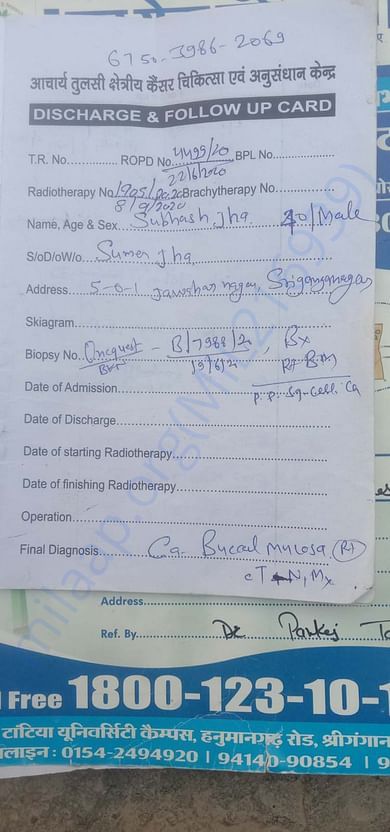 6750-3986-2069
आचार्य तुलसी क्षेत्रीय कैंसर चिकित्सा एवं अनुसंधान केन्द्र
DISCHARGE & FOLLOW UP CARD
T.R. No............. ROPD No. 4499/20 BPL No...............
22/6/2020
Radiotherapy No. 1905/2020 Brachytherapy No...............
8/9/2020
Name, Age & Sex... Subhash Jha 40/Male
S/oD/oW/o... Sumer Jha
Address... 5-0-1 Jawahar nagar, Sriganganagar
Skiagram...............
Biopsy No. Oncquest - B/7988/20, Bx
13/6/2 Rt BM
Date of Admission............... P.P. Sq. Cell. Ca
Date of Discharge...............
Date of starting Radiotherapy...............
Date of finishing Radiotherapy...............
Operation...............
Final Diagnosis... Ca Buccal mucosa (Rt)
N1 Mx
milaap.org
Address...............
Ref. By... Dr Pankaj
Free 1800-123-10-
टांटिया यूनिवर्सिटी कैम्पस, हनुमानगढ़ रोड, श्रीगंगान
लाइन : 0154-2494920 | 94140-90854 | 9